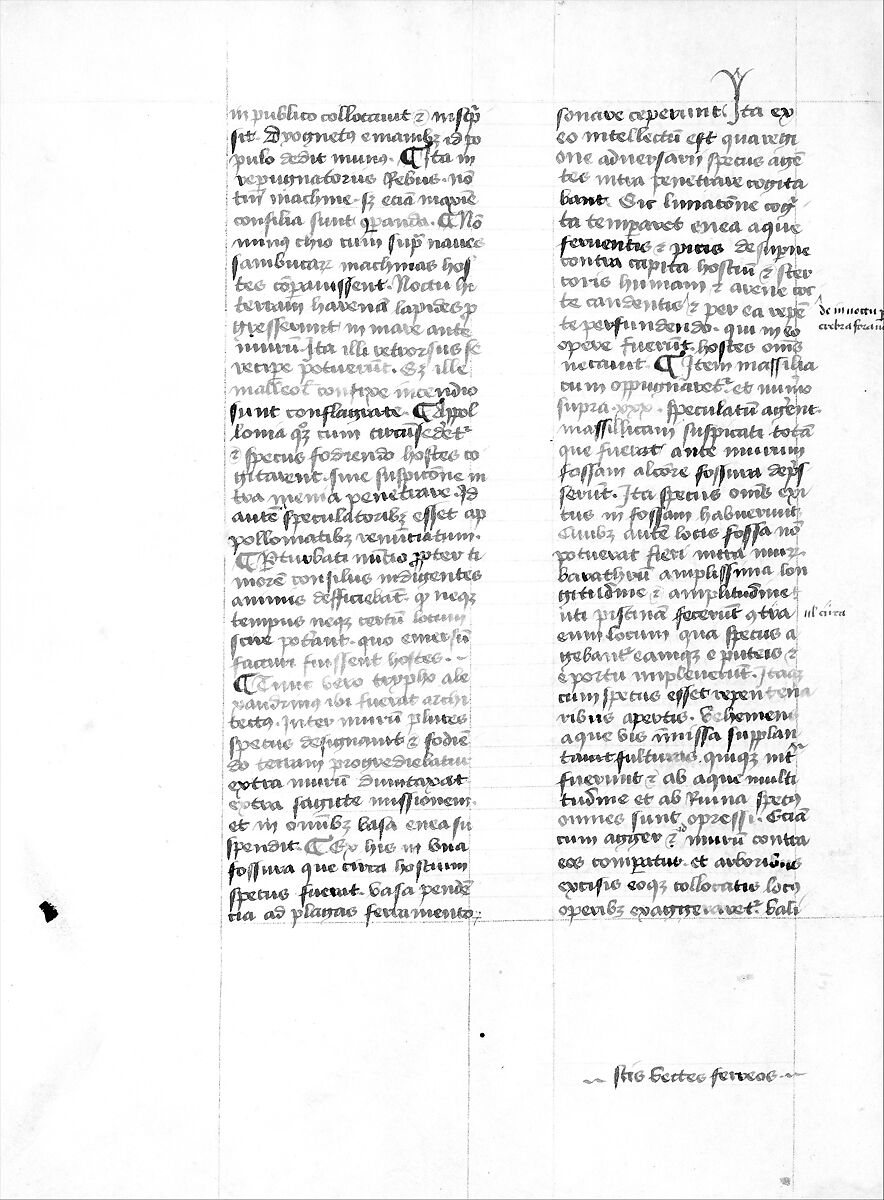 in publico collocauit ⁊ inscp̄
sit. Dyognetꝰ e manibꝫ id po
pulo dedit munꝰ. ¶ Ita in
repugnatoriis Rebus. nō
tm̄ machine. sꝫ eciā inquiē
consilia sunt q̄panda. ¶ Nō
minꝰ chio cum sup̄ naues
sambucaꝝ machinas hos
tes cōpauissent. Noctu hi
terram harenā lapides p̄
gresserunt in mare ante
murū. Ita illi retrorsus se
recipe potuerūt. Sꝫ ille
malleol̄ confixe incendio
sunt conflagrate. ¶ Apol
lonia qꝫ cum circūsedet᷑
⁊ specus fodiendo hostes co
gitarent. sine suspicōne in
tra menia penetrare. Id
autē speculatoribꝫ esset ap
pollomatibꝫ renūciatum.
¶ P̄turbati nūtio ꝓpter ti
morē consilus indigentes
animis defficiebāt. qꝫ neqꝫ
tempus neqꝫ certū locum
scire potāant. quo emersū
facturi fuissent hostes.
¶ Tunc vero trypho ale
xandrinꝰ ibi fuerat archi
tectꝰ. Inter murū plures
specus designauit ⁊ fodiē
do terram progrediebatur
extra murū dumtaxat
extra sagitte missionem.
et in omībꝫ vasa enea su
spendit. ¶ Ex his in vna
fossura que circa hostium
specus fuerat. vasa pendē
cia ad plagas ferramento₎
sonare ceperunt. Ita ex
eo intellectū est qua regi
one aduersarii specus agē
tes intra penetrare cogita
bant. Sic limatōne coḡ
ta temp̄aret enea aque
feruentis ⁊ picis desuꝑne
contra capita hostiū ⁊ ster
coris humani ⁊ arene coc
te candentis ⁊ per ea repē
te perfundendo. qui in eo
opere fuerūt hostes om̄s
necauit. ¶ Item massilia
cum oppugnaret᷑. et num̄o
supra .xxx. speculatū agerent.
massillitani suspicati totā
que fuerat ante murum
fossam alcore fossura dep̄s
serūt. Ita specus om̄s exi
tus in fossam habuerunt
Quibꝫ autē locis fossa nō
potuerat fieri intra muꝝ
barathrū amplissima lon
gitud̄ine ⁊ amplitud̄ine
uti piscinā fecerūt ꝯtra
eum locum qua specus a
gebant᷑ eamqꝫ e puteis ⁊
e portu impleuerūt. Itaqꝫ
cum specus esset repente na
ribus apertis. vehemens
aque vis īmissa supplan
tauit fulturas. quiqꝫ int᷑
fuerunt ⁊ ab aque multi
tud̄ine et ab Ruina specꝰ
omnes sunt opressi. Eciā
cum agger ⁊ ad murū contra
eos comparatur. et arboribus
excisis eoqꝫ collocatis locꝰ
operibꝫ exaggeraret᷑. bali
de in noctu p
crebra foram
ul circa
stis vectes ferreos